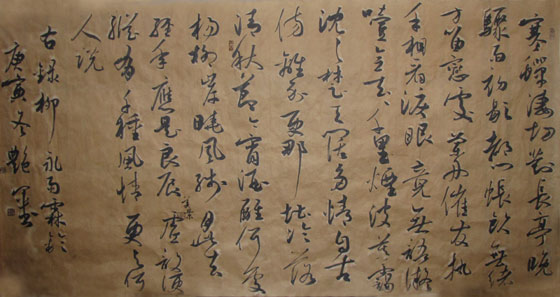 寒蟬淒切對長亭晚
驟雨初歇都門帳飲無緒
方留戀處蘭舟催發執
手相看淚眼竟無語凝
噎念去去千里煙波暮靄
沈沈楚天闊多情自古
傷離別更那堪冷落
清秋節今宵酒醒何處
楊柳岸曉風殘月此去
經年應是良辰好景虛設便
縱有千種風情更與何
人說
古錄柳永雨霖鈴
庚寅冬艷墨